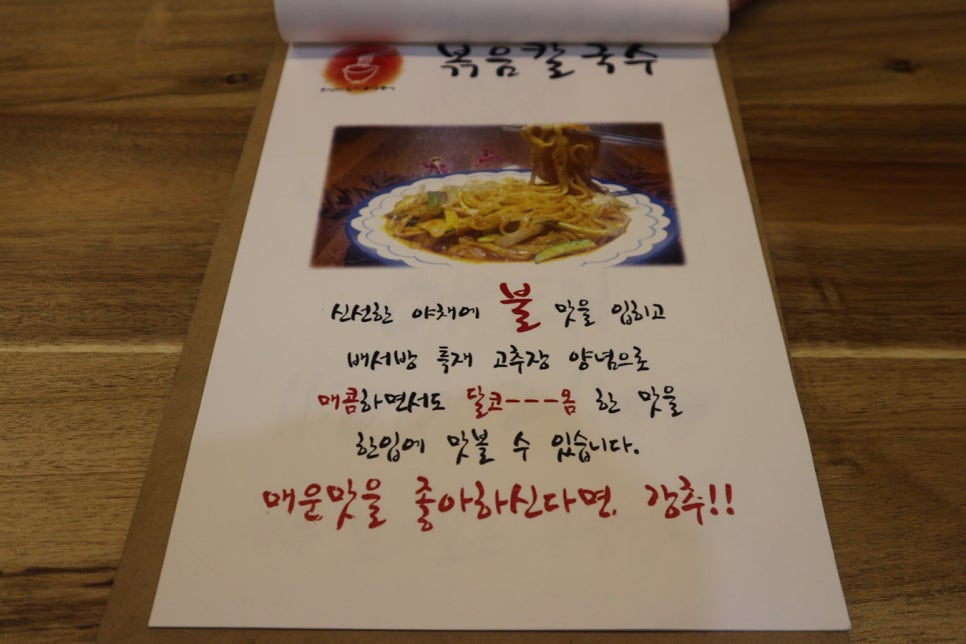 볶음칼국수
신선한 야채에 불 맛을 입히고
배서방 특재 고추장 양념으로
매콤하면서도 달코---옴 한 맛을
한입에 맛볼 수 있습니다.
매운맛을 좋아하신다면. 강추!!